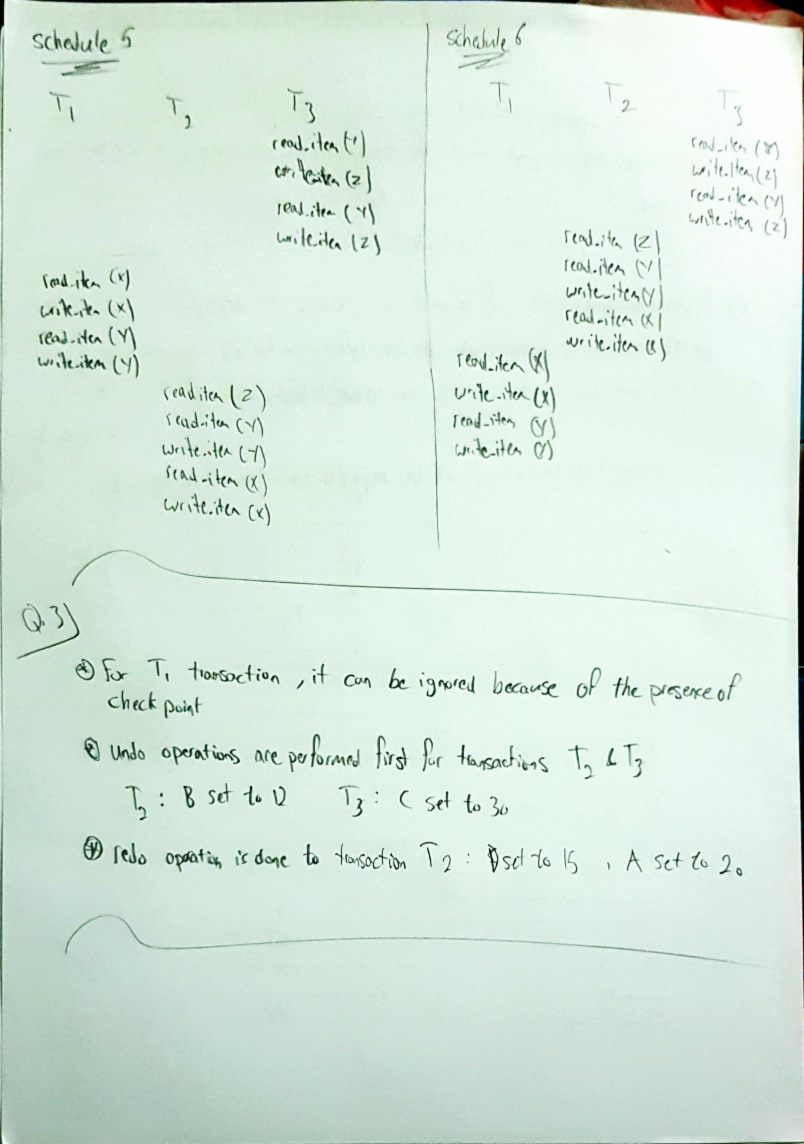 Schedule 5
T1 T2 T3
read-item (Y)
write-item (Z)
read-item (Y)
write item (Z)
read-item (X)
write-item (X)
read-item (Y)
write item (Y)
read item (Z)
read-item (Y)
write-item (Y)
read-item (X)
write-item (X)
Schedule 6
T1 T2 T3
read-item (Y)
write-item (Z)
read-item (Y)
write-item (Z)
read-item (Z)
read-item (Y)
write-item (Y)
read-item (X)
write-item (X)
read-item (X)
write-item (X)
read-item (Y)
write-item (Y)
Q.3)
For T1 transaction, it can be ignored because of the presence of
check point
undo operations are performed first for transactions T2 & T3
T2 : B set to 12 T3 : C set to 30
redo operation is done to transaction T2 : D set to 15 , A set to 20